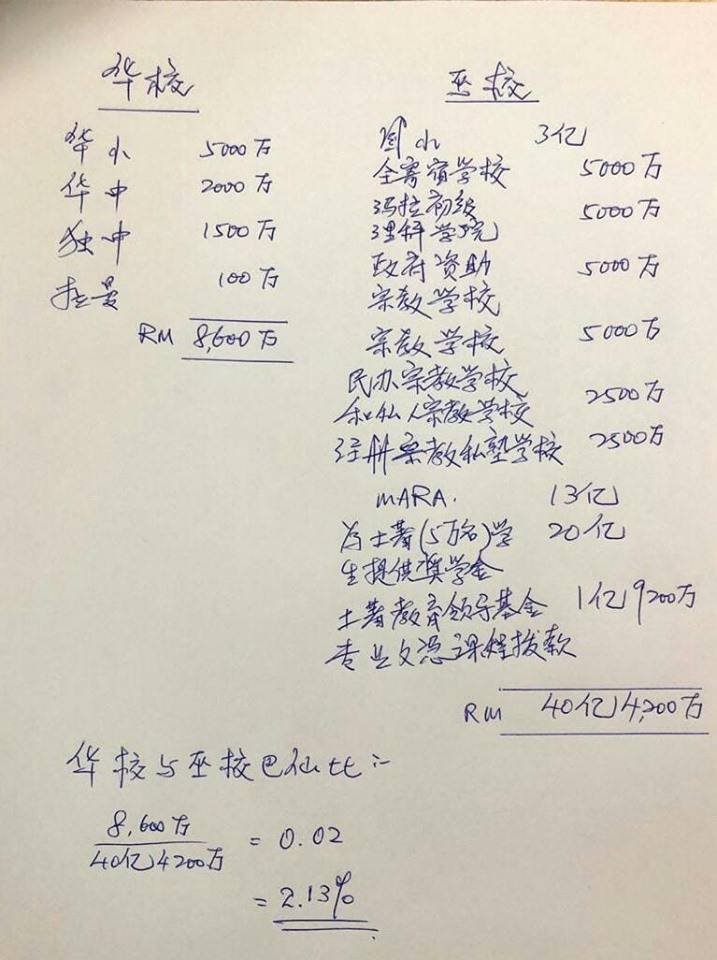 华校
华小 5000万
华中 2000万
独中 1500万
拉曼 100万
RM 8,600万
巫校
国小 3亿
全寄宿学校 5000万
玛拉初级 5000万
理科学院
政府资助 5000万
宗教学校
宗教学校 5000万
民办宗教学校
和私人宗教学校 2500万
注册宗教私塾学校 2500万
MARA. 13亿
为土著(5万名)学 20亿
生提供奖学金
土著教育领导基金 1亿9200万
专业文凭课程拨款
RM 40亿4,200万
华校与巫校巴仙比:-
8,600万
40亿4200万
= 0.02
= 2.13%